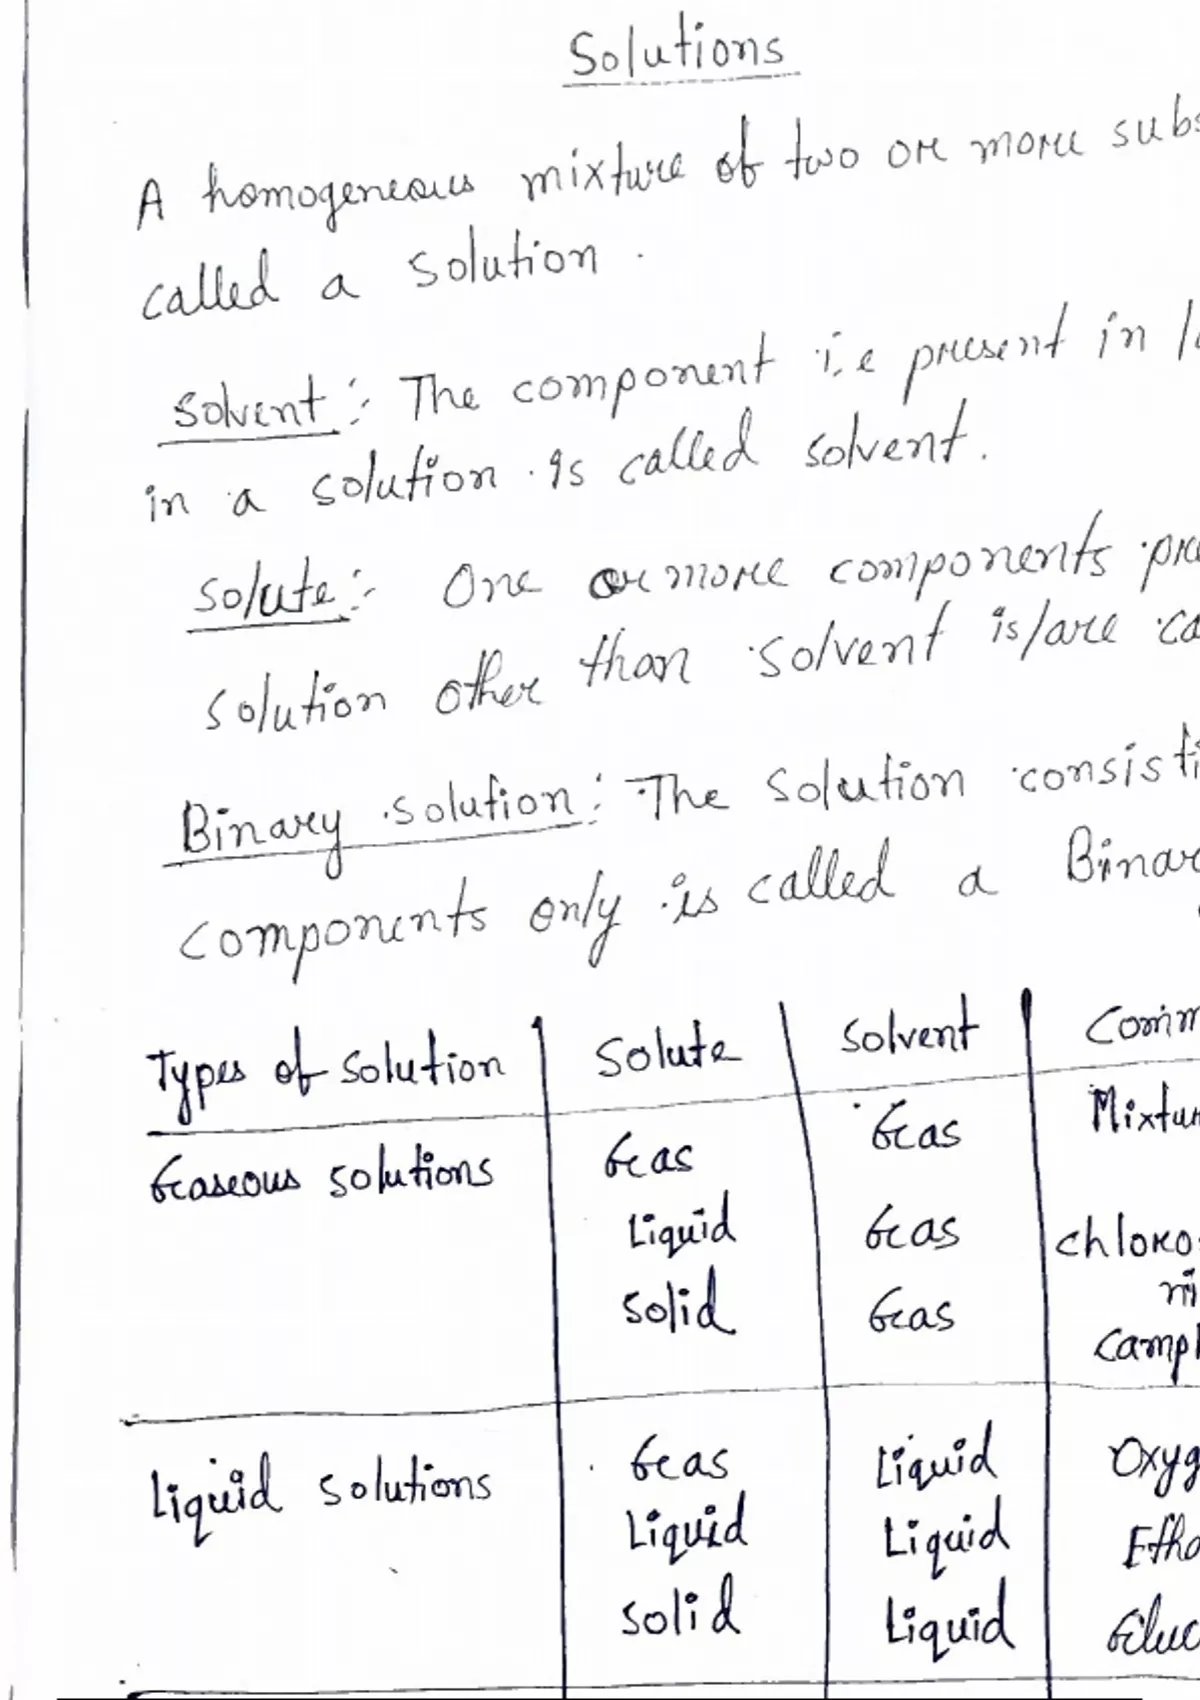 Solutions
A homogeneous mixture of two or more subs
called a solution.
Solvent :- The component i.e present in l
in a solution is called solvent.
Solute :- One or more components pre
solution other than solvent is/are ca
Binary solution :- The solution consisti
components only is called a Binar
Types of solution Solute Solvent Comm
Gaseous solutions Gas Gas Mixtur
Liquid Gas chloro
Solid Gas ni
Camph
Liquid solutions Gas Liquid Oxyg
Liquid Liquid Etha
Solid Liquid Gluc